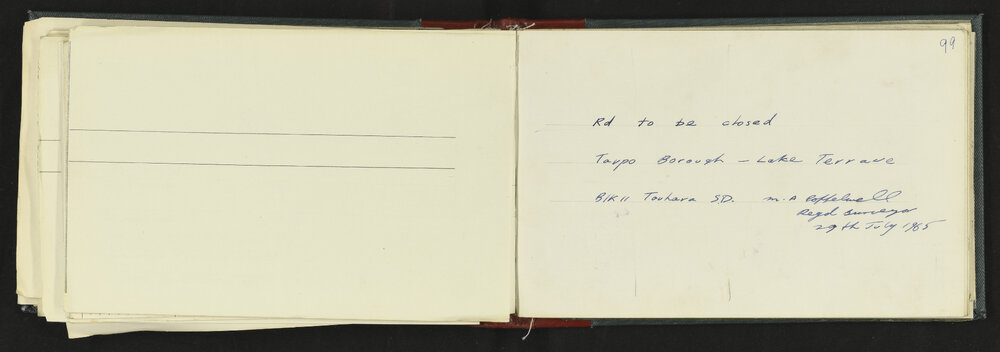 99
Rd to be closed
Taupo Borough - Lake Terrace
Blk II Tauhara S.D. M. A
Regd Surveyor
29th July 1965